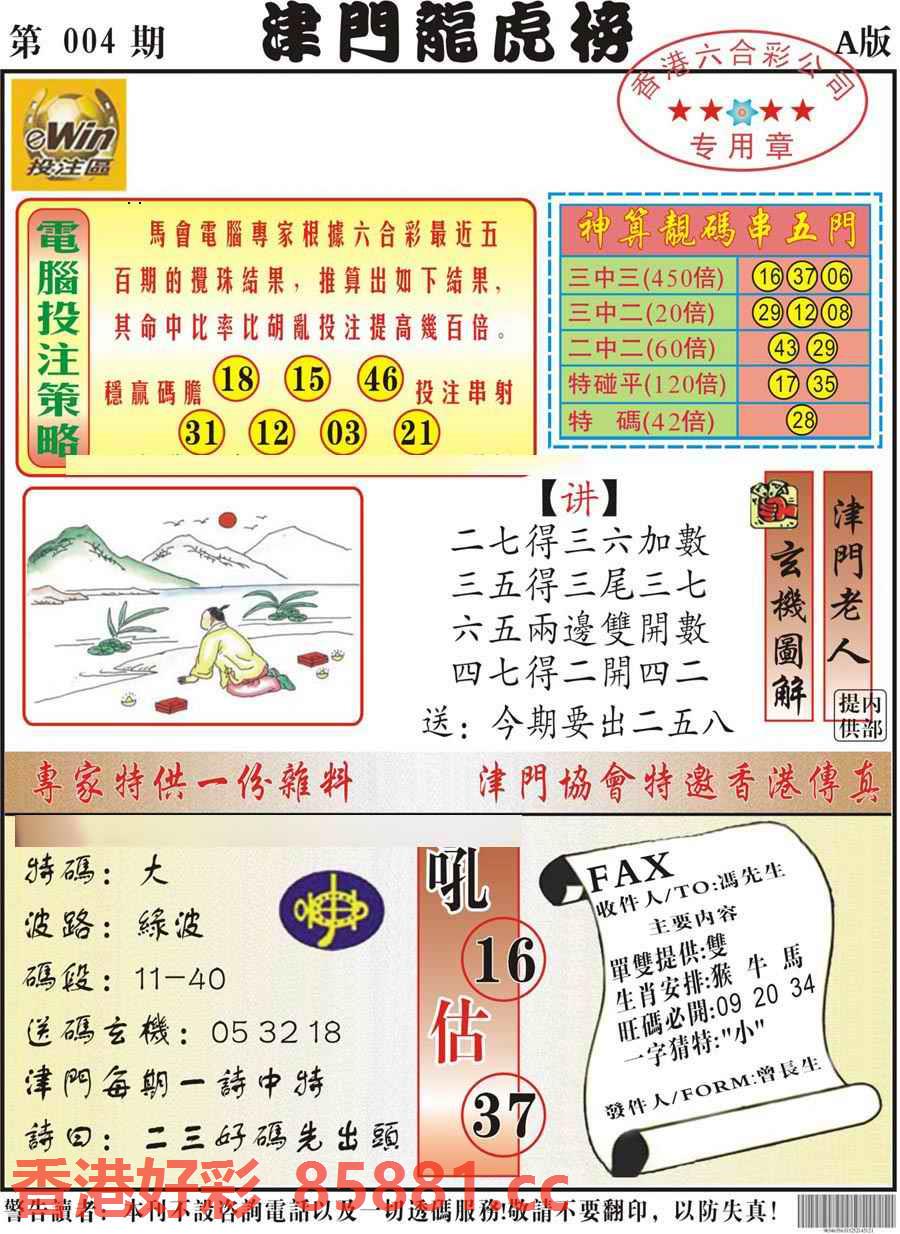 第 004 期
津門龍虎榜
A版
香港六合彩公司
专用章
eWin
投注區
電腦投注策略
馬會電腦專家根據六合彩最近五
百期的攪珠結果，推算出如下結果，
其命中比率比胡亂投注提高幾百倍。
穩贏碼膽 18 15 46 投注串射
31 12 03 21
神算靚碼串五門
三中三(450倍) 16 37 06
三中二(20倍) 29 12 08
二中二(60倍) 43 29
特碰平(120倍) 17 35
特 碼(42倍) 28
【讲】
二七得三六加數
三五得三尾三七
六五兩邊雙開數
四七得二開四二
送：今期要出二五八
玄機圖解
津門老人
内部提供
專家特供一份雜料
津門協會特邀香港傳真
特碼：大
波路：綠波
碼段：11-40
送碼玄機：05 32 18
津門每期一詩中特
詩曰：二三好碼先出頭
吼
16
估
37
FAX
收件人/TO:馮先生
主要内容
單雙提供:雙
生肖安排:猴 牛 馬
旺碼必開:09 20 34
一字猜特:"小"
發件人/FORM:曾長生
香港好彩 85881.cc
警告讀者：本刊不設咨詢電話以及一切透碼服務!敬請不要翻印，以防失真!